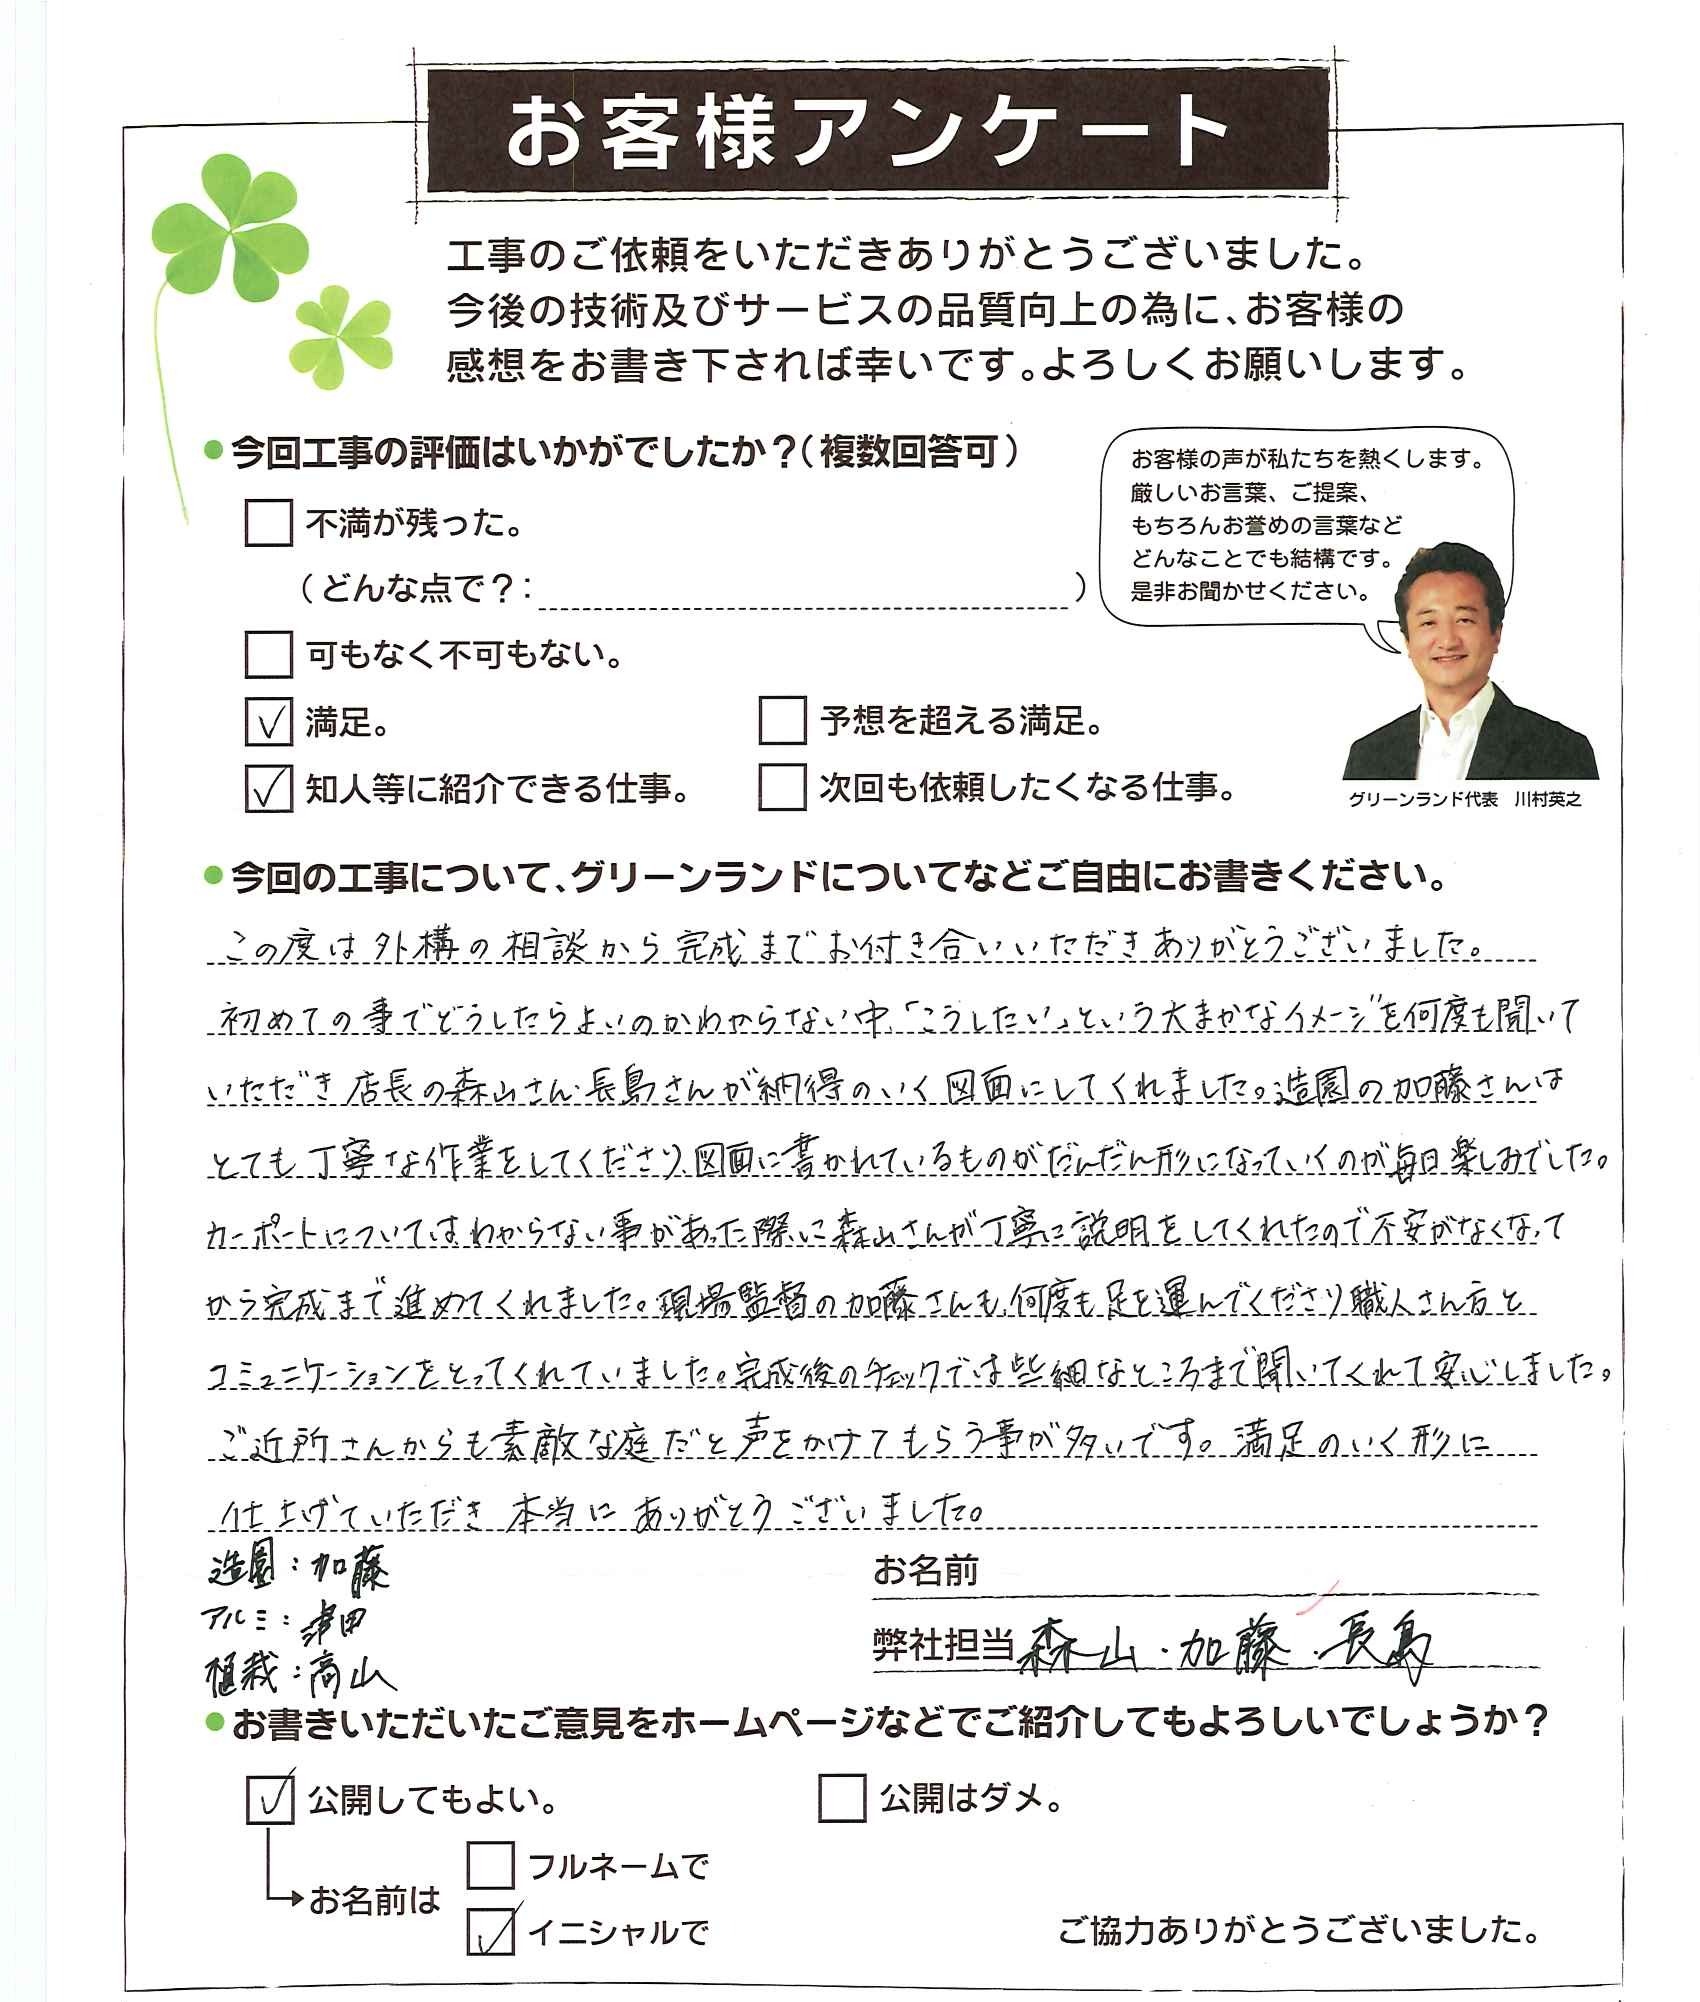 お客様アンケート
工事のご依頼をいただきありがとうございました。
今後の技術及びサービスの品質向上の為に、お客様の
感想をお書き下されば幸いです。よろしくお願いします。
●今回工事の評価はいかがでしたか？（複数回答可）
お客様の声が私たちを熱くします。
厳しいお言葉、ご提案、
もちろんお誉めの言葉など
どんなことでも結構です。
是非お聞かせください。
グリーンランド代表　川村英之
不満が残った。
（どんな点で？：　）
可もなく不可もない。
満足。　予想を超える満足。
知人等に紹介できる仕事。　次回も依頼したくなる仕事。
●今回の工事について、グリーンランドについてなどご自由にお書きください。
この度は外構の相談から完成までお付き合いいただきありがとうございました。
初めての事でどうしたらよいのかわからない中、「こうしたい」という大まかなイメージを何度も聞いて
いただき店長の森山さん・長島さんが納得のいく図面にしてくれました。造園の加藤さんは
とても丁寧な作業をしてくださり、図面に書かれているものがだんだん形になっていくのが毎日楽しみでした。
カーポートについてはわからない事があった際に森山さんが丁寧に説明をしてくれたので不安がなくなって
から完成まで進めてくれました。現場監督の加藤さんも、何度も足を運んでくださり職人さん方と
コミュニケーションをとってくれていました。完成後のチェックでは些細なところまで聞いてくれて安心しました。
ご近所さんからも素敵な庭だと声をかけてもらう事が多いです。満足のいく形に
仕上げていただき本当にありがとうございました。
造園：加藤
アルミ：津田
植栽：高山
お名前
弊社担当 森山・加藤・長島
●お書きいただいたご意見をホームページなどでご紹介してもよろしいでしょうか？
公開してもよい。　公開はダメ。
フルネームで
お名前は
イニシャルで
ご協力ありがとうございました。